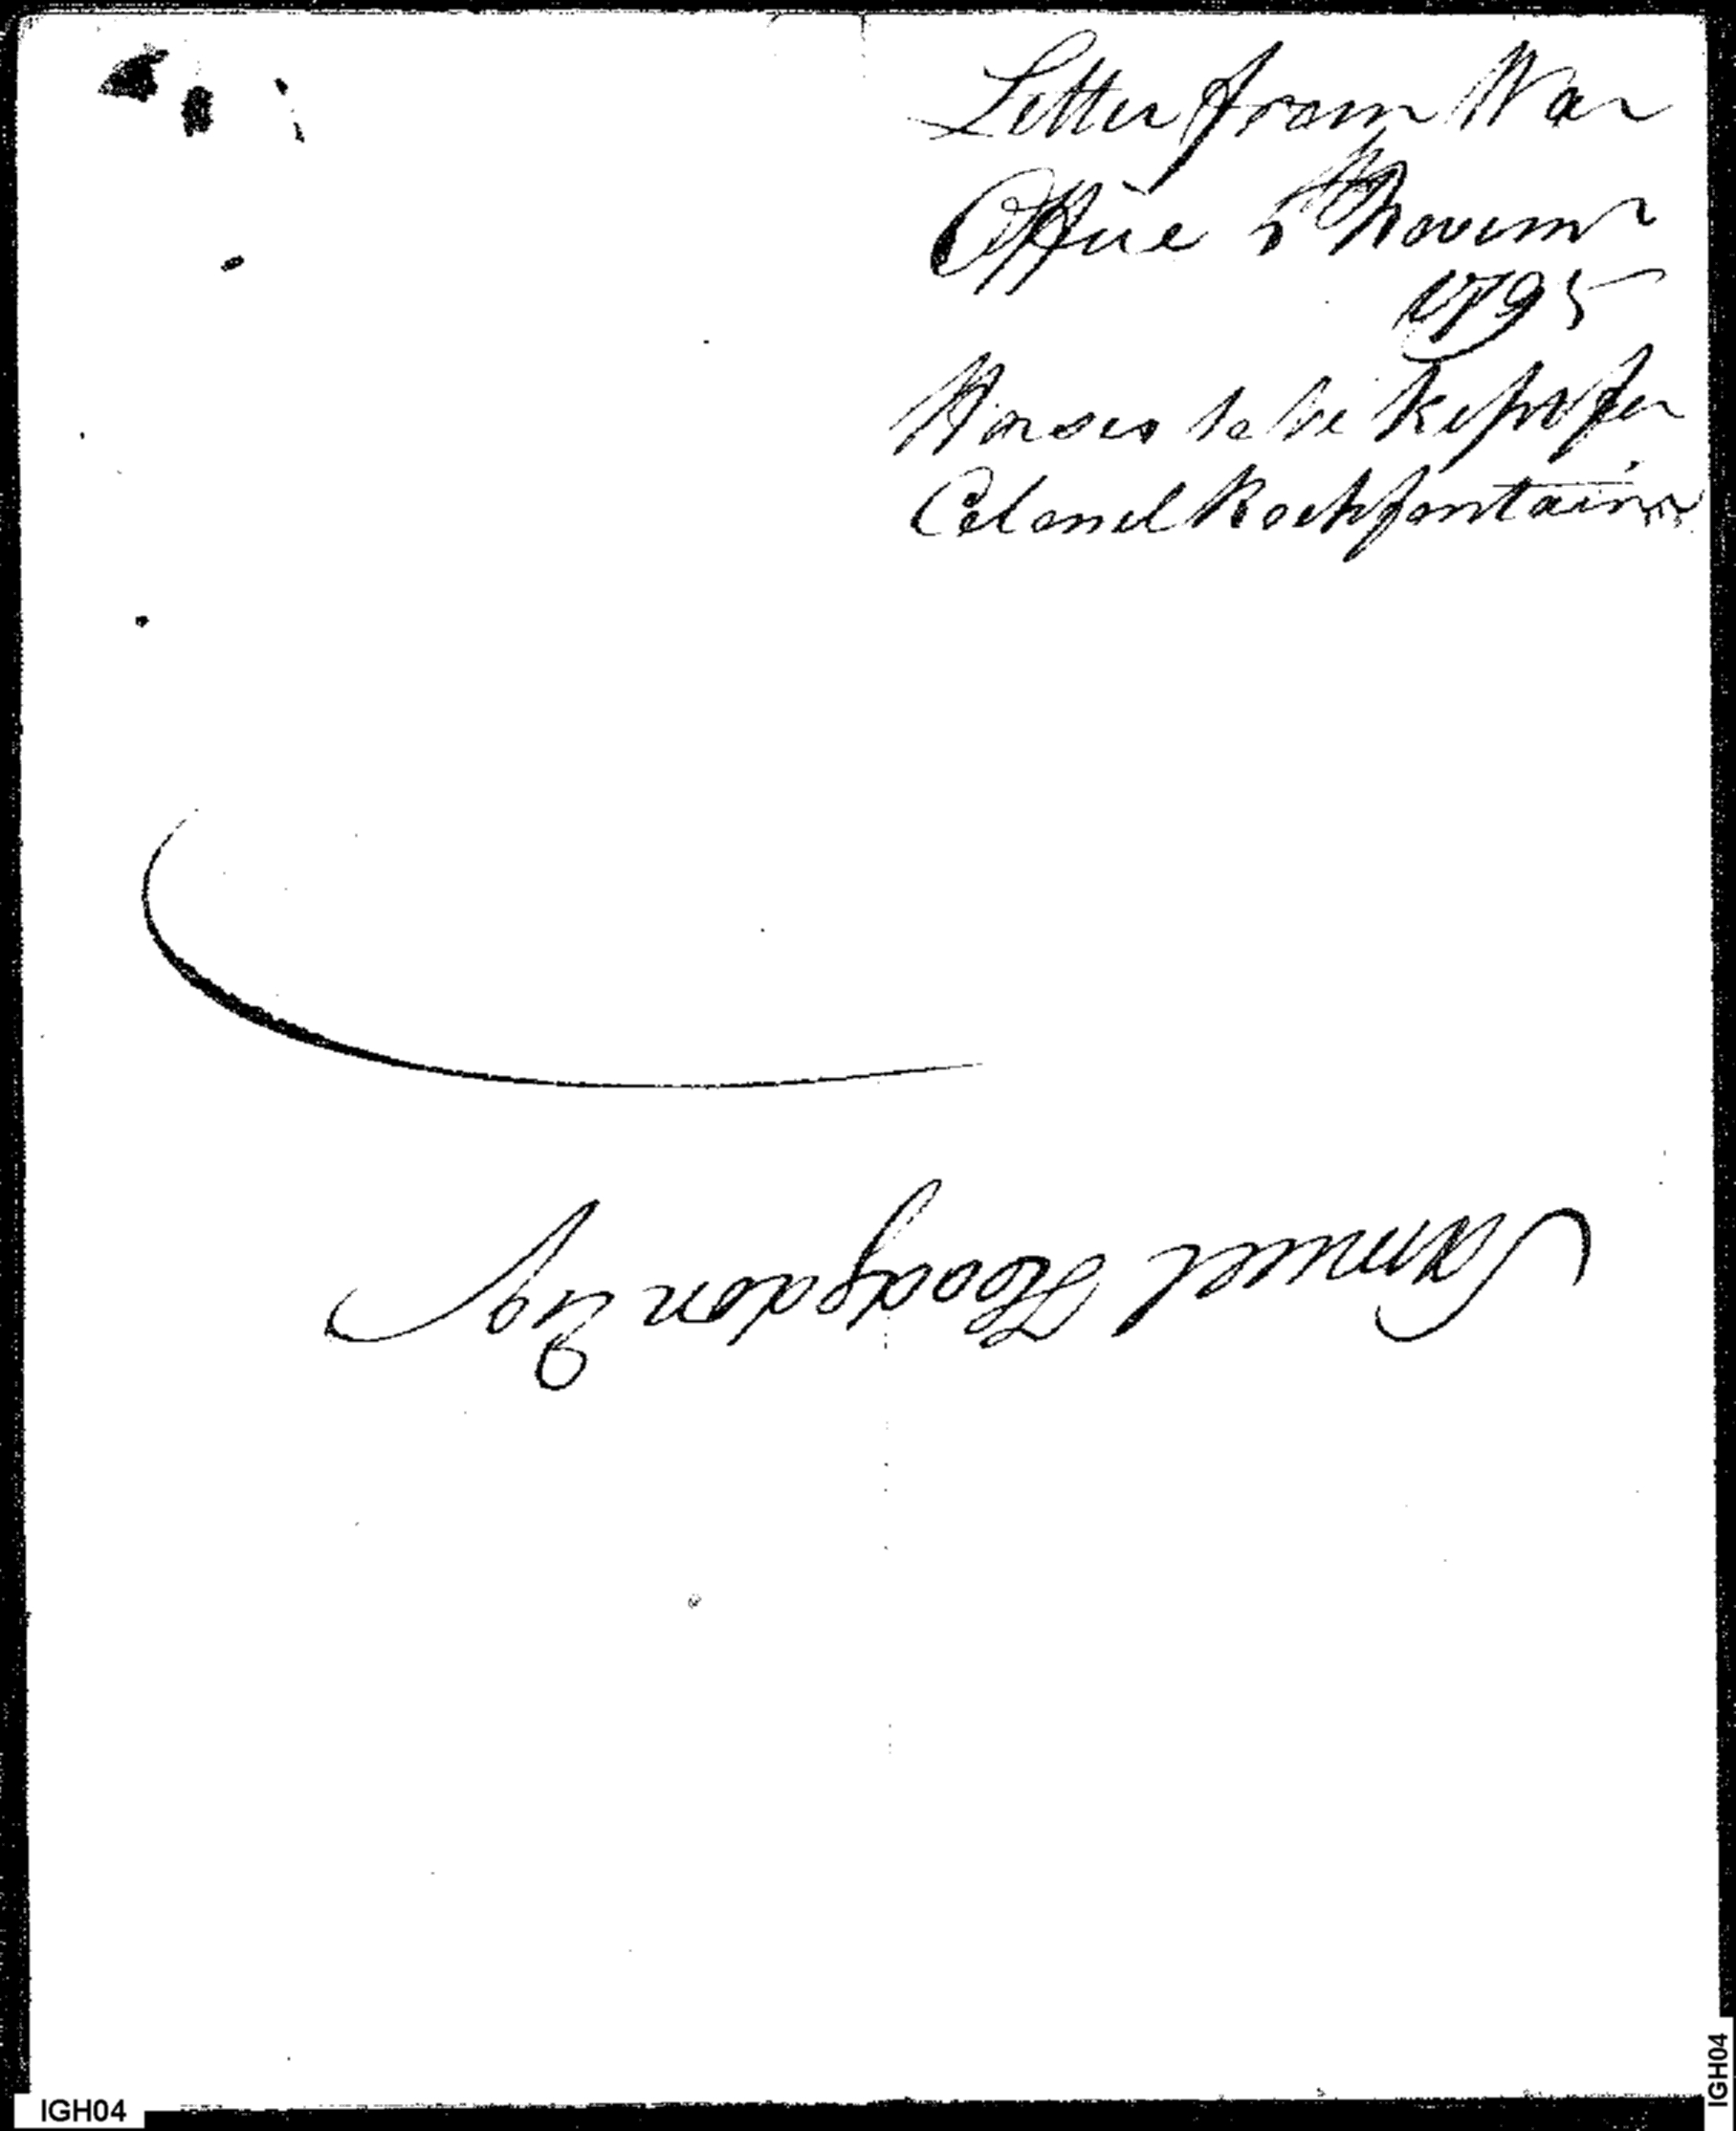 Letter from War
Office 5th Novemr
1795
Horses to be kept for
Colonel Rochfontain
Samuel Hodgdon Esqr
IGH04
IGH04